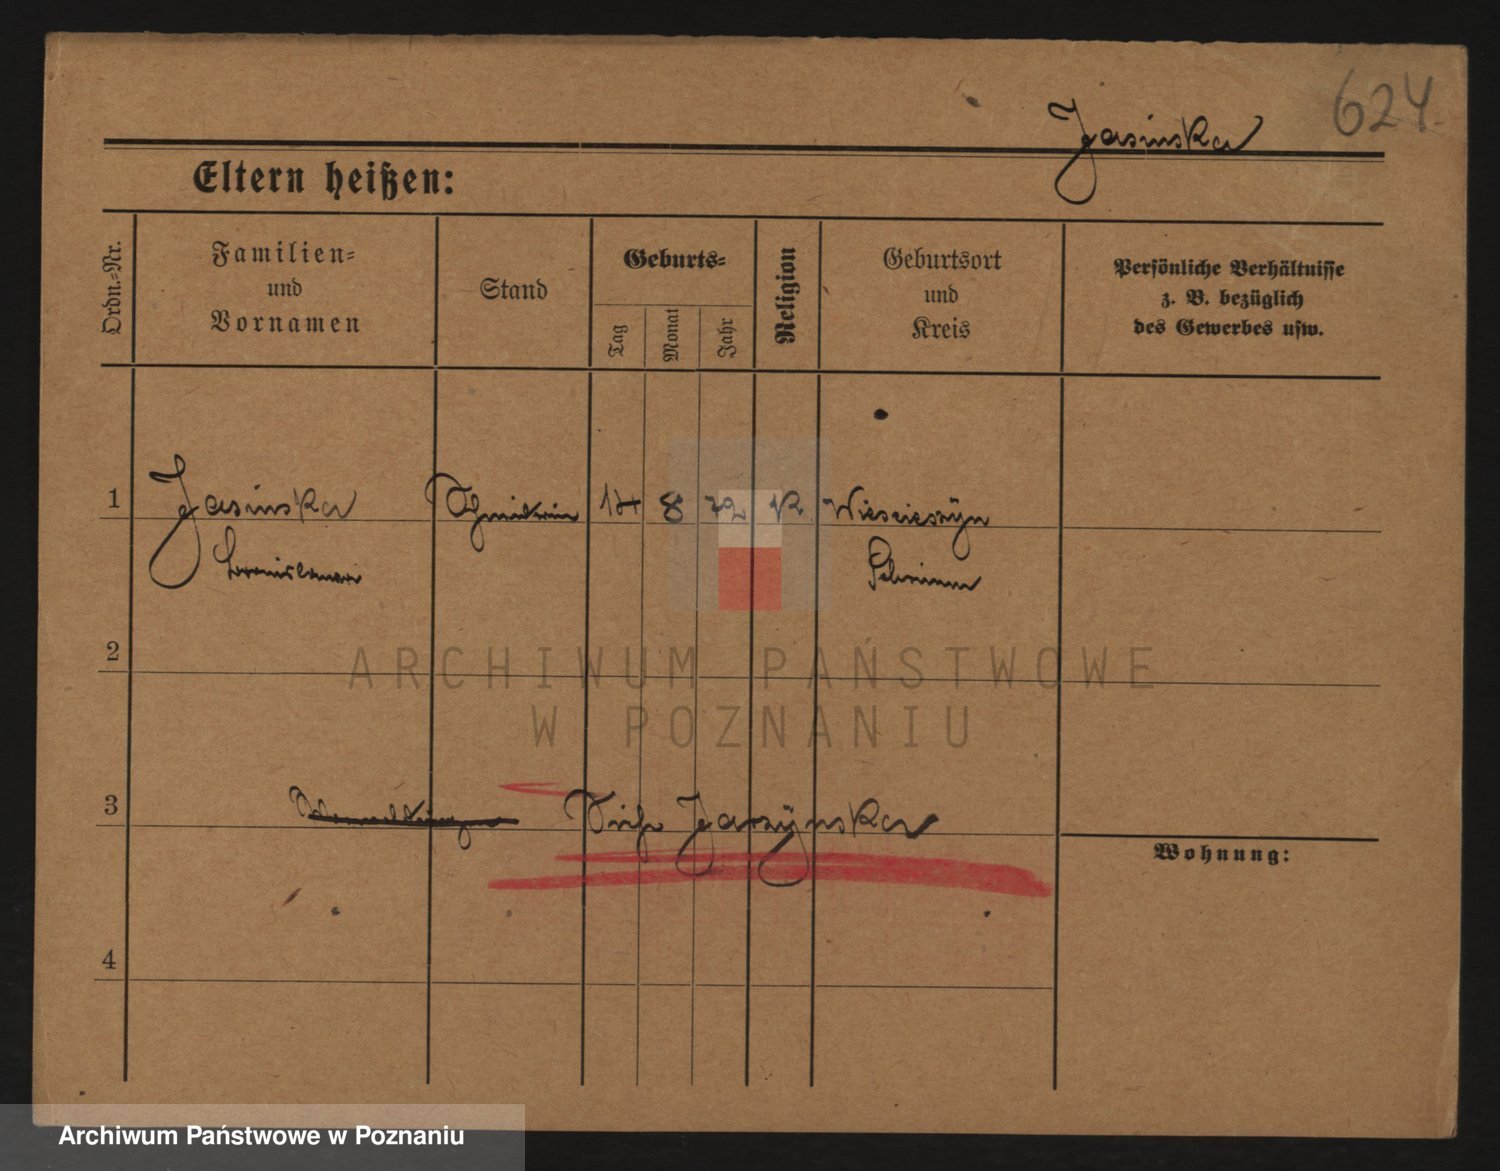 624.
Jasinska
Eltern heißen:
Ordn.=Nr.
Familien=
und
Vornamen
Stand
Geburts=
Tag
Monat
Jahr
Religion
Geburtsort
und
Kreis
Persönliche Verhältnisse
z. B. bezüglich
des Gewerbes usw.
1
Jasinska
14 8 72 K
2
3
Jarzÿnska
Wohnung:
4
ARCHIWUM PAŃSTWOWE
W POZNANIU
Archiwum Państwowe w Poznaniu